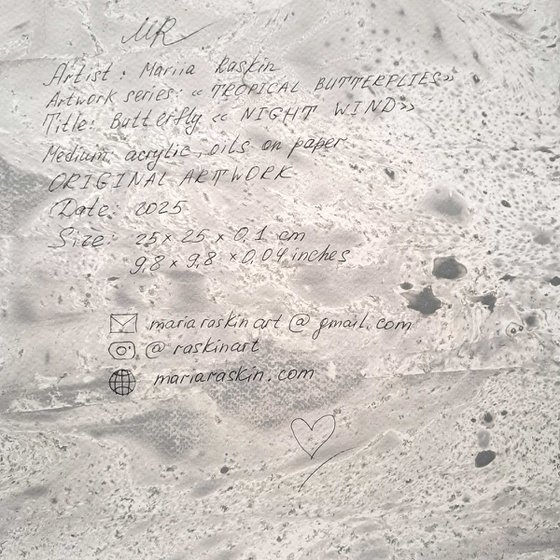 MR
Artist: Mariia Raskin
Artwork series: «TROPICAL BUTTERFLIES»
Title: Butterfly «NIGHT WIND»
Medium: acrylic, oils on paper
ORIGINAL ARTWORK
Date: 2025
Size: 25 x 25 x 0,1 cm
9,8 x 9,8 x 0,04 inches
mariaraskinart@gmail.com
@raskinart
mariaraskin.com